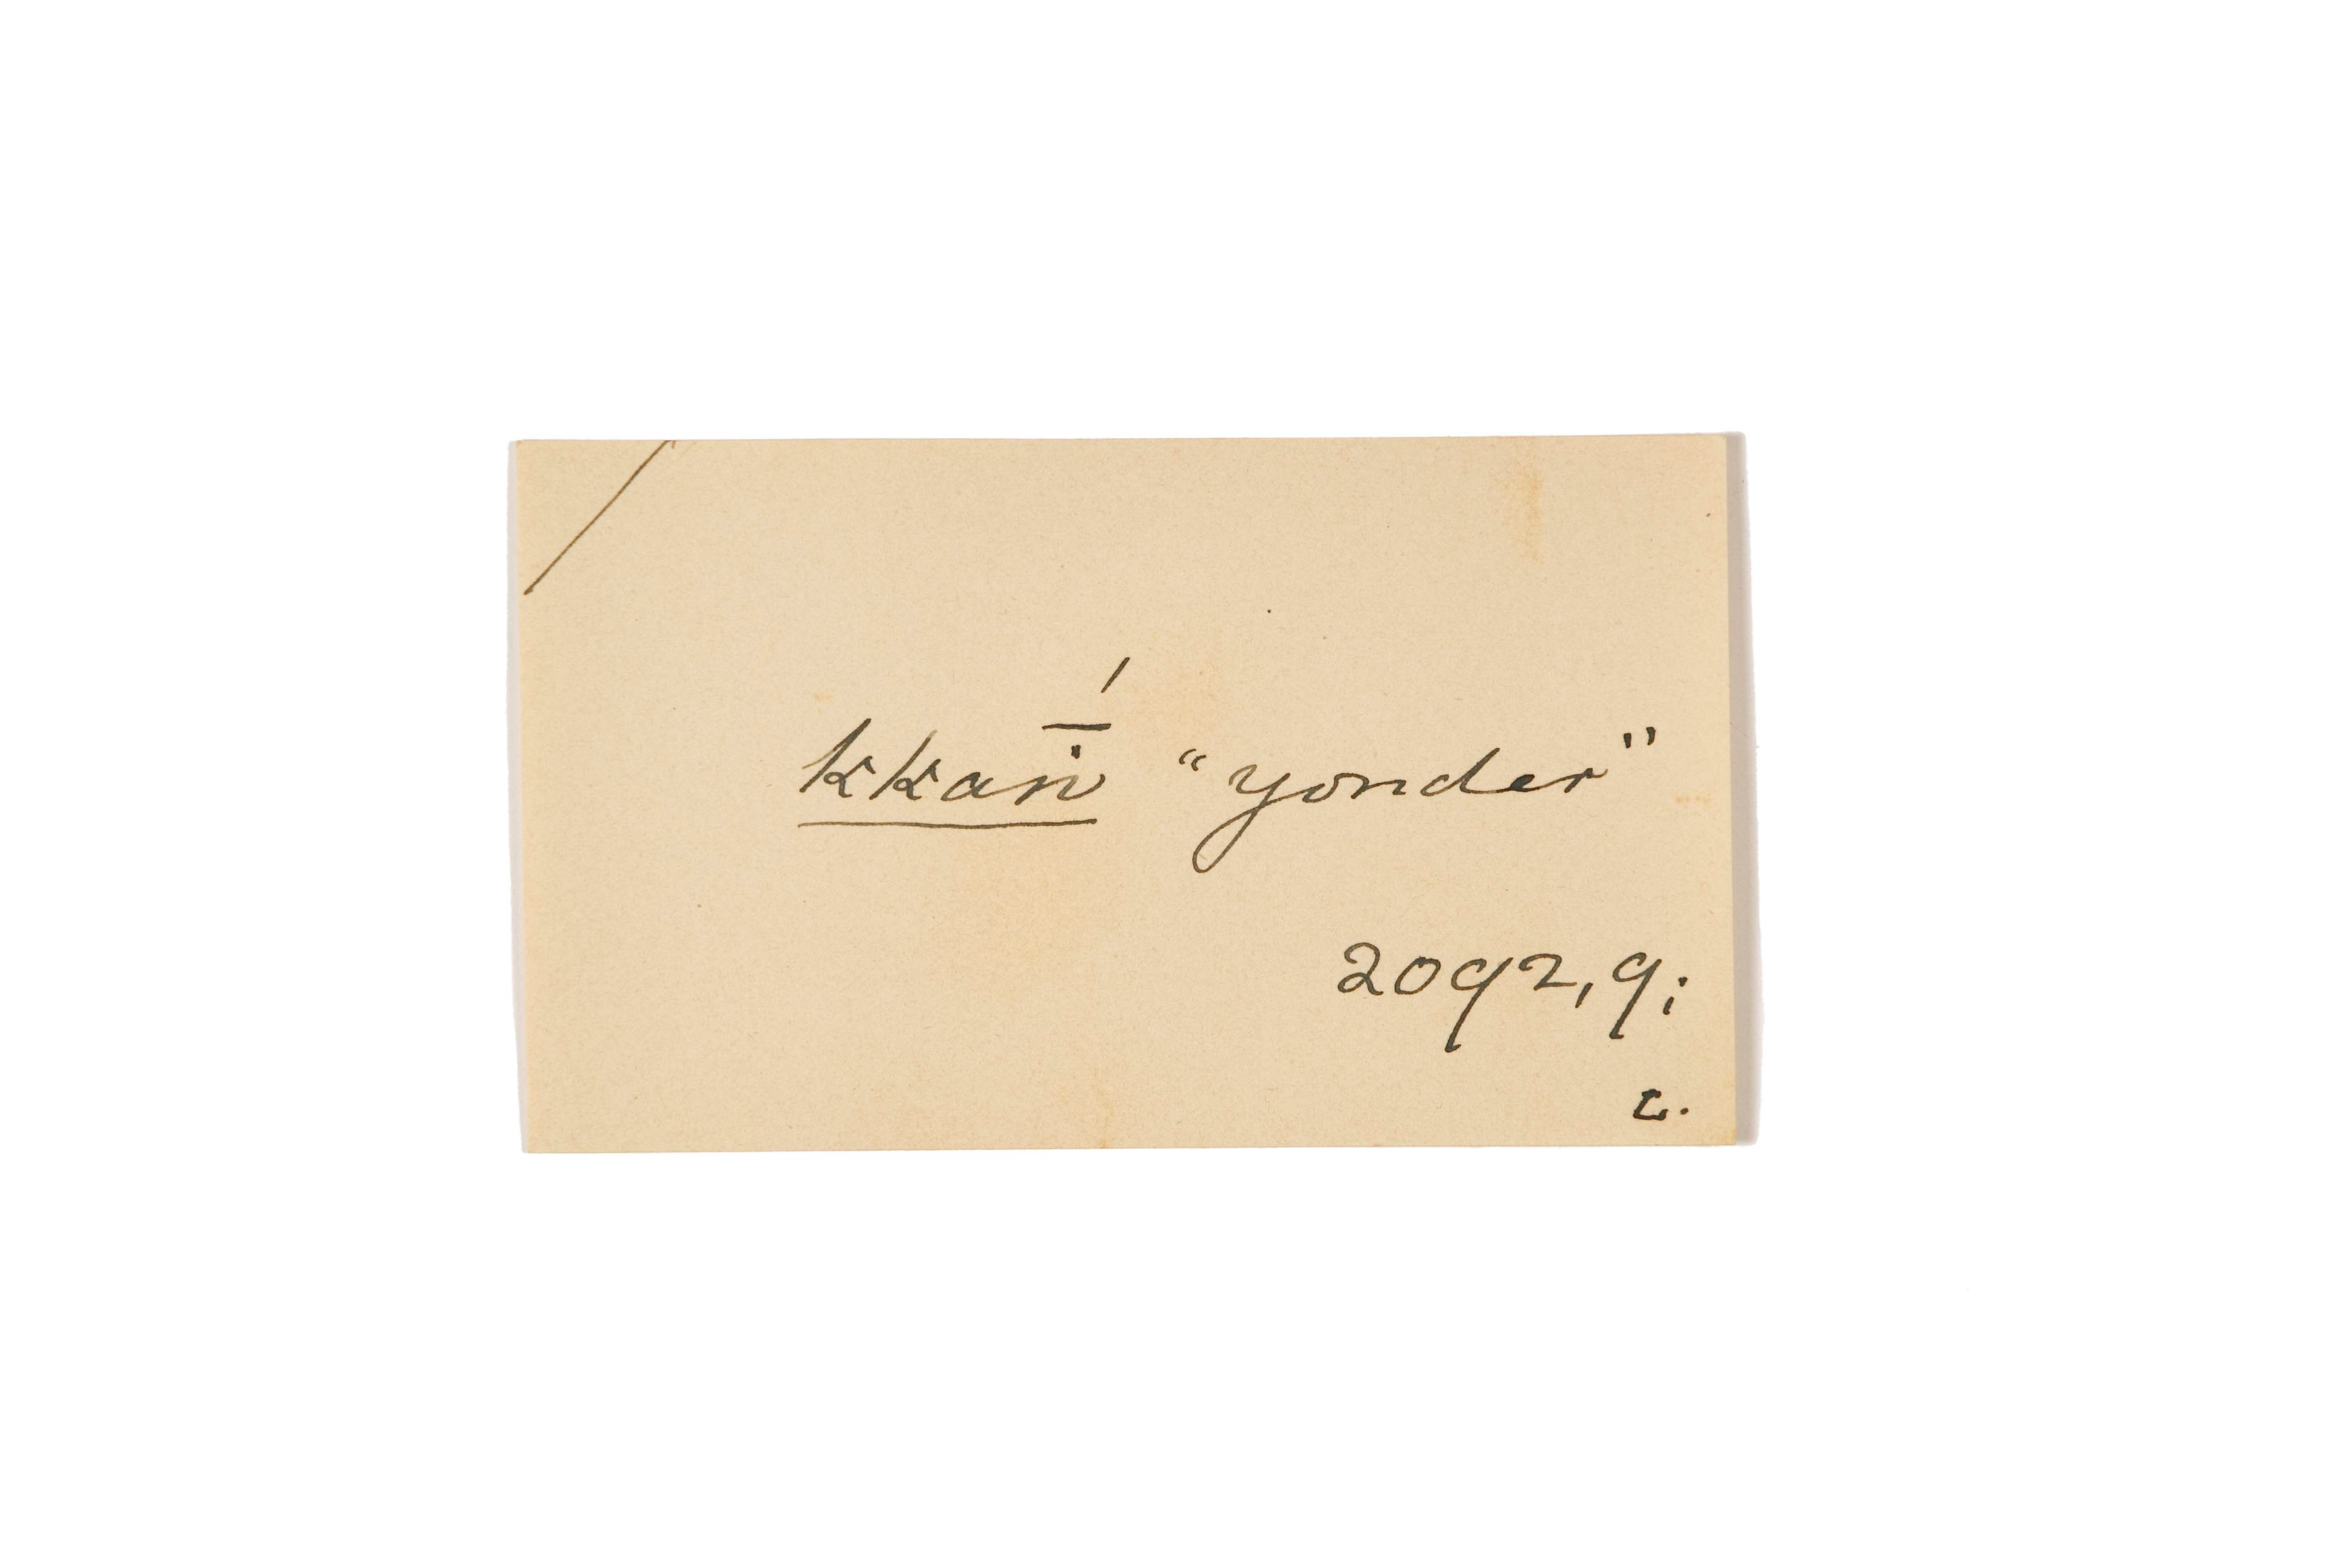 kkaṅ̄́ "yonder"
2092,9;
c.